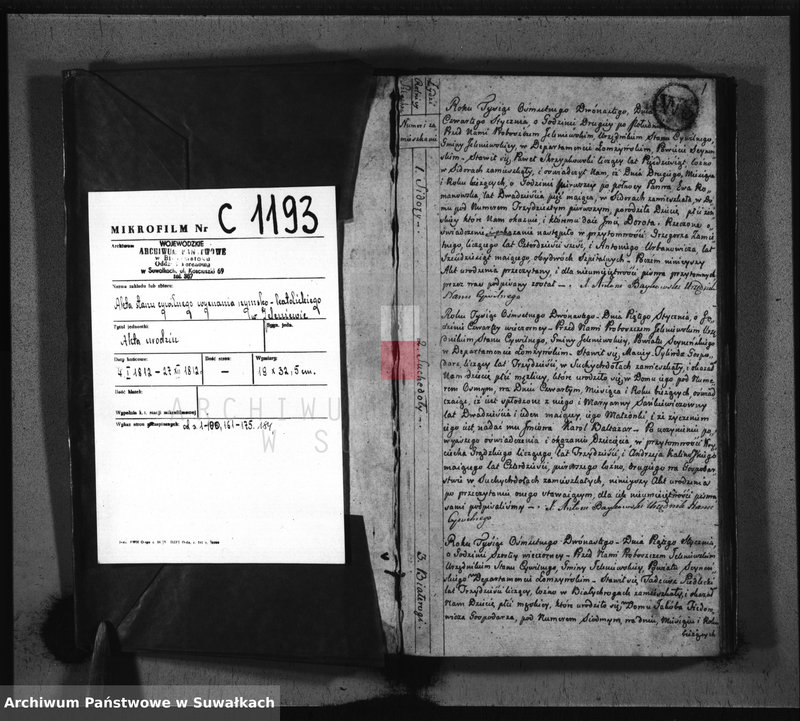 MIKROFILM Nr C 1193
Archiwum
WOJEWÓDZKIE
ARCHIWUM PAŃSTWOWE
w Białymstoku
Oddział Terenowy
w Suwałkach, ul. Kościuszki 69
tel. 367
Nazwa zakładu lub zbioru:
Akta stanu cywilnego wyznania rzymsko-katolickiego
w Jeleniewie
Tytuł jednostki:
Sygn. jedn.
Akta urodzin
Daty końcowe:
Ilość stron:
Wymiary:
4 I 1812 - 27 XII 1812
-
19 x 32,5 cm.
Ilość klatek:
Wypełnia k. t. stacji mikrofilmowej
Wykaz stron
od s 1-
1
Numer i za
mieszkanie
1. Sidory.
Roku Tysiąc Osmsetnego Dwónastego, Dnia
Czwartego Stycznia, o Godzinie Drugiey po południu
Przed Nami Proboszczem Jeleniewskim Urzędnikiem Stanu Cywilnego,
Gminy Jeleniewskiey, w Departamencie Łomżynskim, Powiecie Seyneń
skim - Stawił się, Paweł Skrzypkowski liczący lat Pięćdziesiąt
w Sidorach zamieszkały, i oświadczył Nam, iż Dnia Drugiego, Miesiąca
i Roku bieżących, o Godzinie pierwszey po północy Panna Ewa Ro
manowska, lat Dwadzieścia pięć maiąca, w Sidorach zamieszkała, w Do
mu pod Numerem Trzydziestym pierwszym, porodziła Dziecię, płci żeń
skiey które Nam okazuie, i któremu daie Imię, Dorota. Rzeczone o
świadczenie i okazanie nastąpiło w przytomności Grzegorza
liczącego lat Czterdzieści sześć, i Antoniego Urbanowicza, lat
Sześćdziesiąt maiącego obydwóch Szpitalnych. Poczem ninieyszy
Akt urodzenia przeczytany, i dla nieumiętności pisma przytomnych
przez nas podpisany został - X Antoni Baykowski Urzędnik
Stanu Cywilnego
2. Suchodoły.
Roku Tysiąc Osmsetnego Dwónastego - Dnia Piątego Stycznia, o Go
dzinie Czwartey wieczorney - Przed Nami Proboszczem Jeleniewskim Urzę
dnikiem Stanu Cywilnego, Gminy Jeleniewskiey, Powiatu Seyneńskiego
w Departamencie Łomżynskim. Stawił się, Maciey Tylinda Gospo
darz, liczący lat Trzydzieści w Suchychdołach zamieszkały, i okazał
Nam dziecię płci męzkiey, które urodziło się, w Domu iego pod Nume
rem Osmym, na Dniu Czwartym, Miesiąca i Roku bieżących, oświad
czaiąc, iż iest spłodzone z niego i Maryanny
lat Dwadzieścia i ieden maiącey, iego Małżonki i iż życzeniem
iego iest nadać mu Imiona Karol Baltazar - Po uczynieniu po
wyższego oświadczenia i okazaniu Dziecięcia, w przytomności Woy
ciecha liczącego, lat Trzydzieści, i Andrzeja Kalinowskiego
maiącego lat Czterdzieści, pierwszego drugiego na Gospodar
stwie w Suchychdołach zamieszkałych, ninieyszy Akt urodzenia
po przeczytaniu onego stawaiącym, dla ich nieumieiętności pisma
sami podpisaliśmy - X Antoni Baykowski Urzędnik Stanu
Cywilnego
3. Białorogi.
Roku Tysiąc Osmsetnego Dwónastego - Dnia Piątego Stycznia,
o Godzinie Szóstey wieczorney - Przed Nami Proboszczem Jeleniewskim
Urzędnikiem Stanu Cywilnego, Gminy Jeleniewskiey, Powiatu Seyneń
skiego Departamencie Łomżynskim - Stawił się, Tadeusz Siedlecki
lat Trzydzieści liczący, w Białychrogach zamieszkały, i okazał
Nam Dziecię płci męzkiey, które urodziło się, w Domu Jakóba Fiedo
wicza Gospodarza, pod Numerem Siodmym, na dniu, Miesiąca i Roku
bieżących
ARCHIWUM
W SU
Archiwum Państwowe w Suwałkach